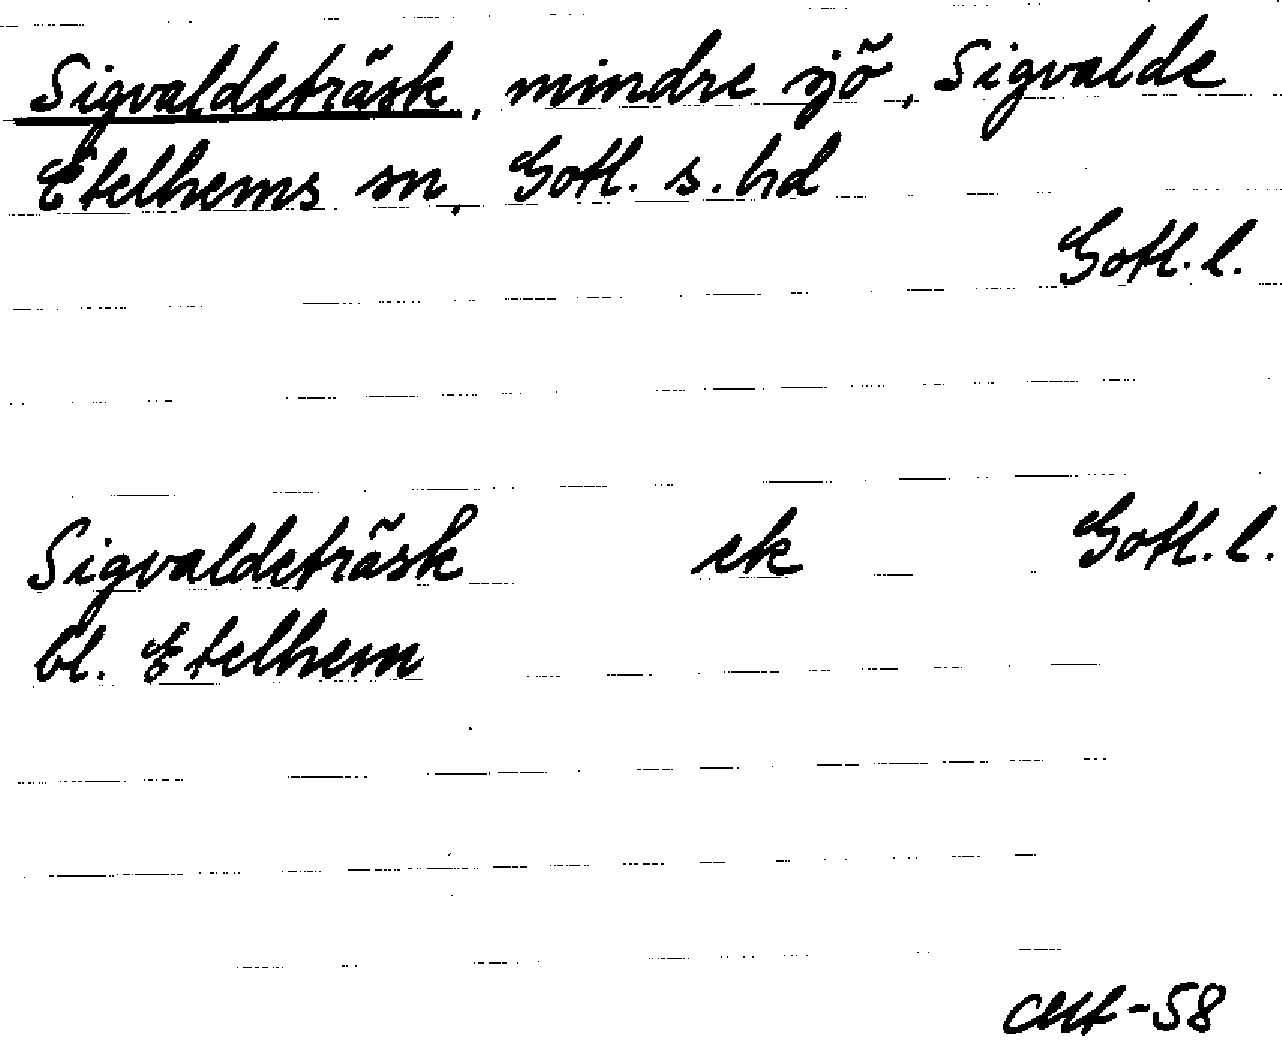 Sigvaldeträsk, mindre sjö, Sigvalde
Etelhems sn, Gotl. s. hd
Gotl. l.
Sigvaldeträsk ek Gotl. l.
bl. Etelhem
-58